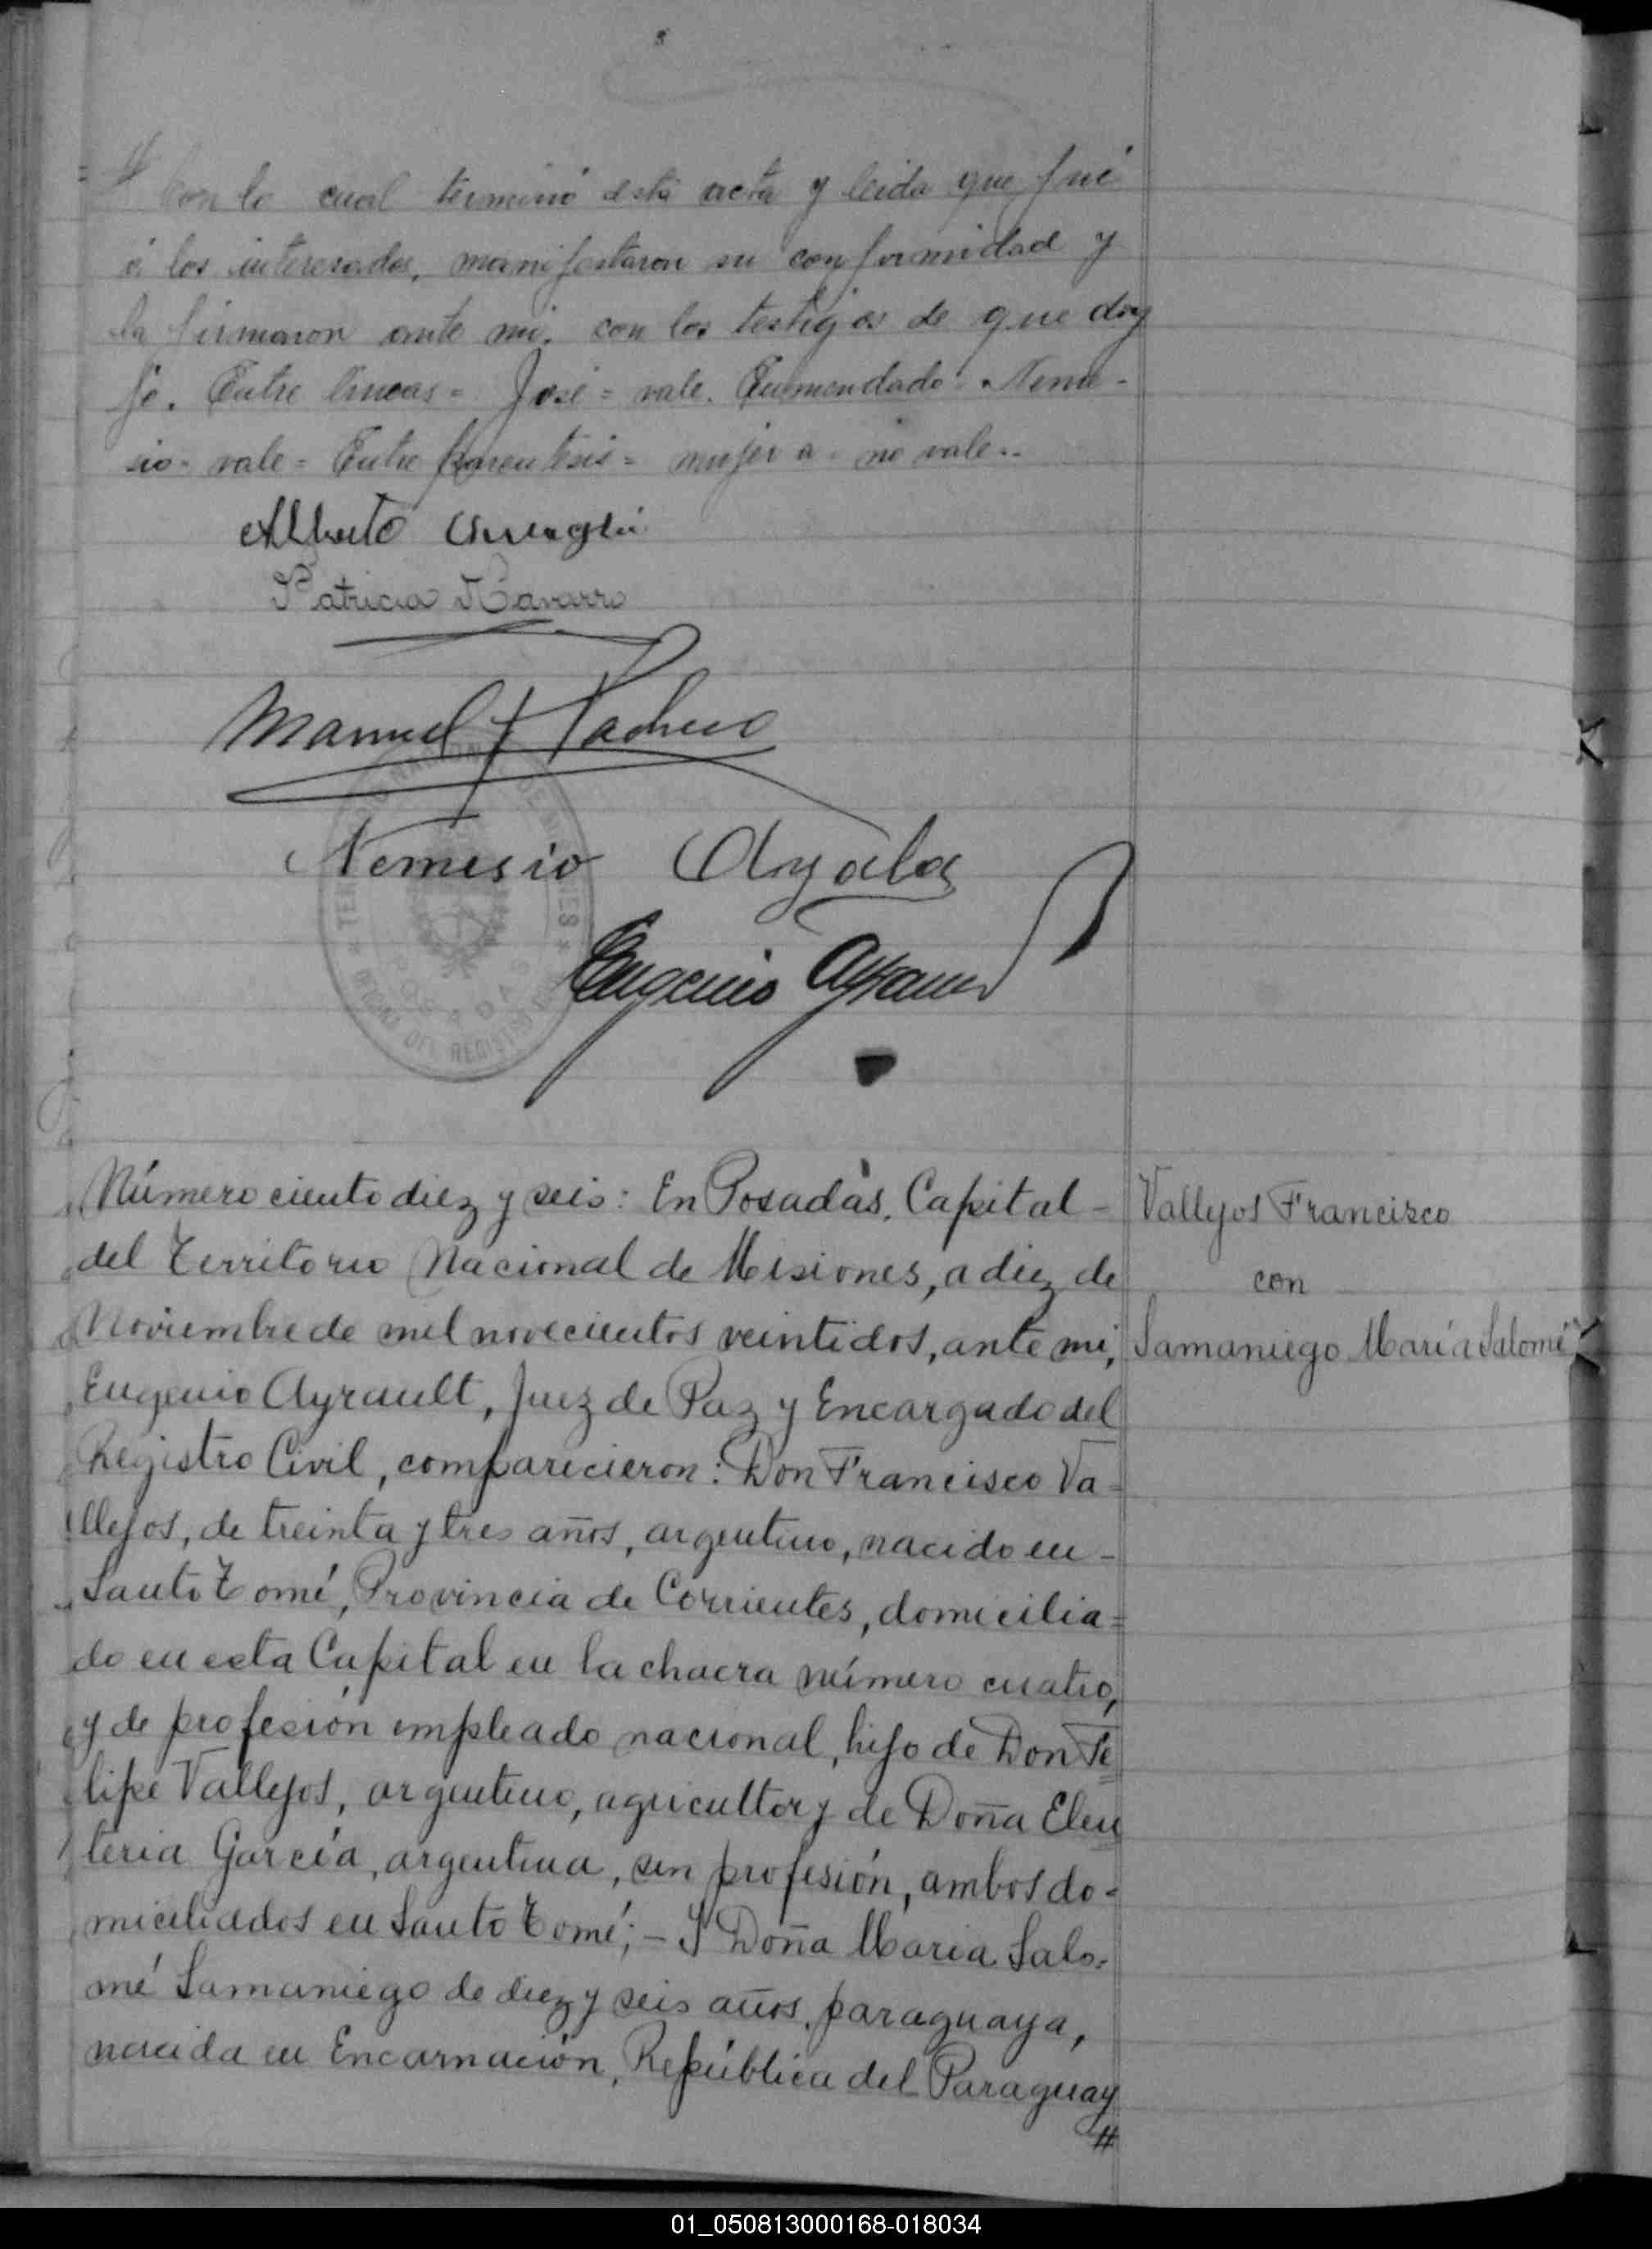 Con lo cual terminó esta acta y leida que fué
á los interesados, manifestaron su conformidad y
la firmaron ante mi, con los testigos de que doy
fé. Entre líneas = José = vale. Enmendado = Neme-
sio = vale = Entre parentesis = mujer a = no vale..
Alberto
Patricia Navarro
Manuel J Pacheco
Nemesio Ayala
Eugenio Ayrault
POSADAS
Número ciento diez y seis: En Posadas, Capital -
del Territorio Nacional de Misiones, a diez de
Noviembre de mil novecientos veintidos, ante mi,
Eugenio Ayrault, Juez de Paz y Encargado del
Registro Civil, comparecieron: Don Francisco Va=
llejos, de treinta y tres años, argentino, nacido en -
Santo Tomé, Provincia de Corrientes, domicilia=
do en esta Capital en la chacra número cuatro,
y de profesión empleado nacional, hijo de Don Fe
lipe Vallejos, argentino, agricultor y de Doña Eleu
teria García, argentina, sin profesión, ambos do=
miciliados en Santo Tomé; - Y Doña Maria Salo=
mé Samaniego de diez y seis años, paraguaya,
nacida en Encarnación, República del Paraguay
#
Vallejos Francisco
con
Samaniego María Salomé
01_050813000168-018034